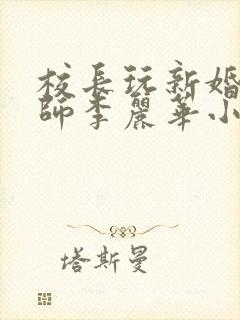 校長玩新婚
師李麗華小
塔斯曼